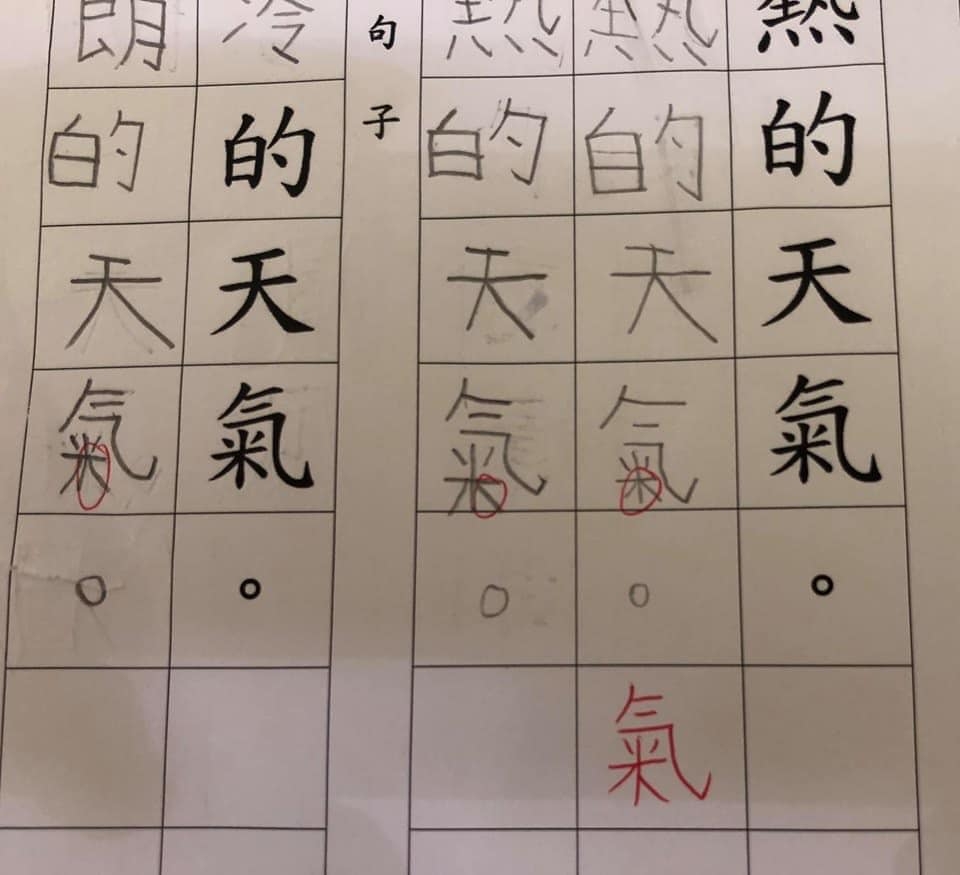 熱的天氣。
熱的天氣。氣
熱的天氣。
句子
冷的天氣。
朗的天氣。